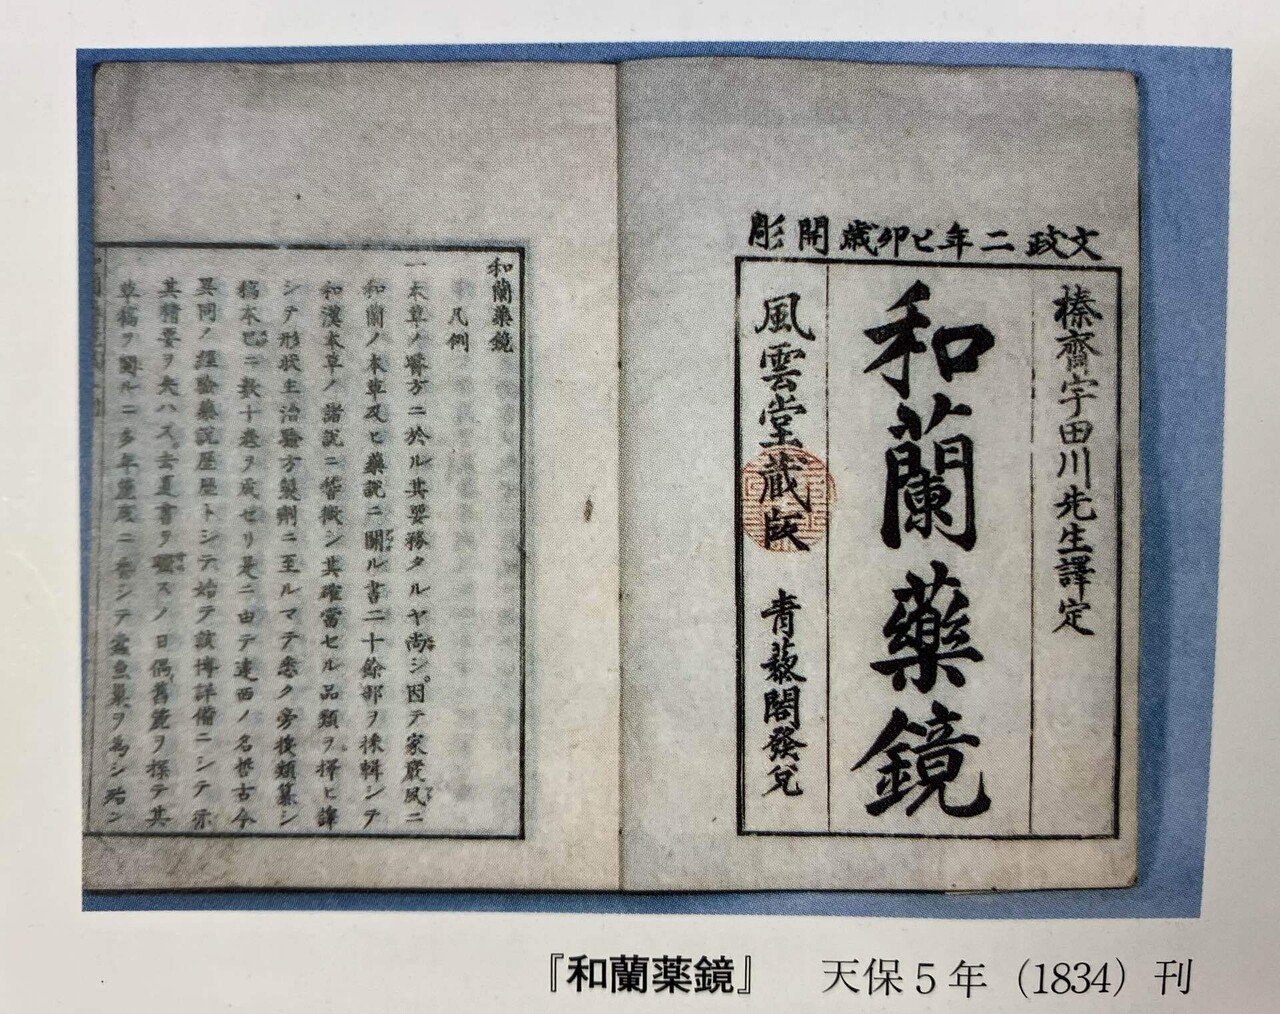 文政二年己卯歳開彫
榛齋宇田川先生譯定
和蘭藥鏡
風雲堂蔵版 青藜閣發兌
和蘭藥鏡
凡例
一本草ノ醫方ニ於ル其要務タルヤ尚シ。因テ家嚴夙ニ
和蘭ノ本草及ヒ藥説ニ關ル書二十餘部ヲ採輯シテ
和漢本草ノ諸説ニ徴シ其確當セル品類ヲ擇ヒ譯
シテ形状主治驗方製劑ニ至ルマテ悉ク旁捜類纂シ
稿本已ニ數十巻ヲ成セリ是ニ由テ遠西ノ名哲古今
異同ノ經驗藥説歴歴トシテ始テ該博詳備ニシテ亦
其精要ヲ失ハス去夏書ヲ曝スノ日偶舊篋ヲ探テ其
草稿ヲ閲ルニ多年篋底ニシテ蠧魚巢ヲ為シ殆ン
『和蘭薬鏡』 天保5年（1834）刊